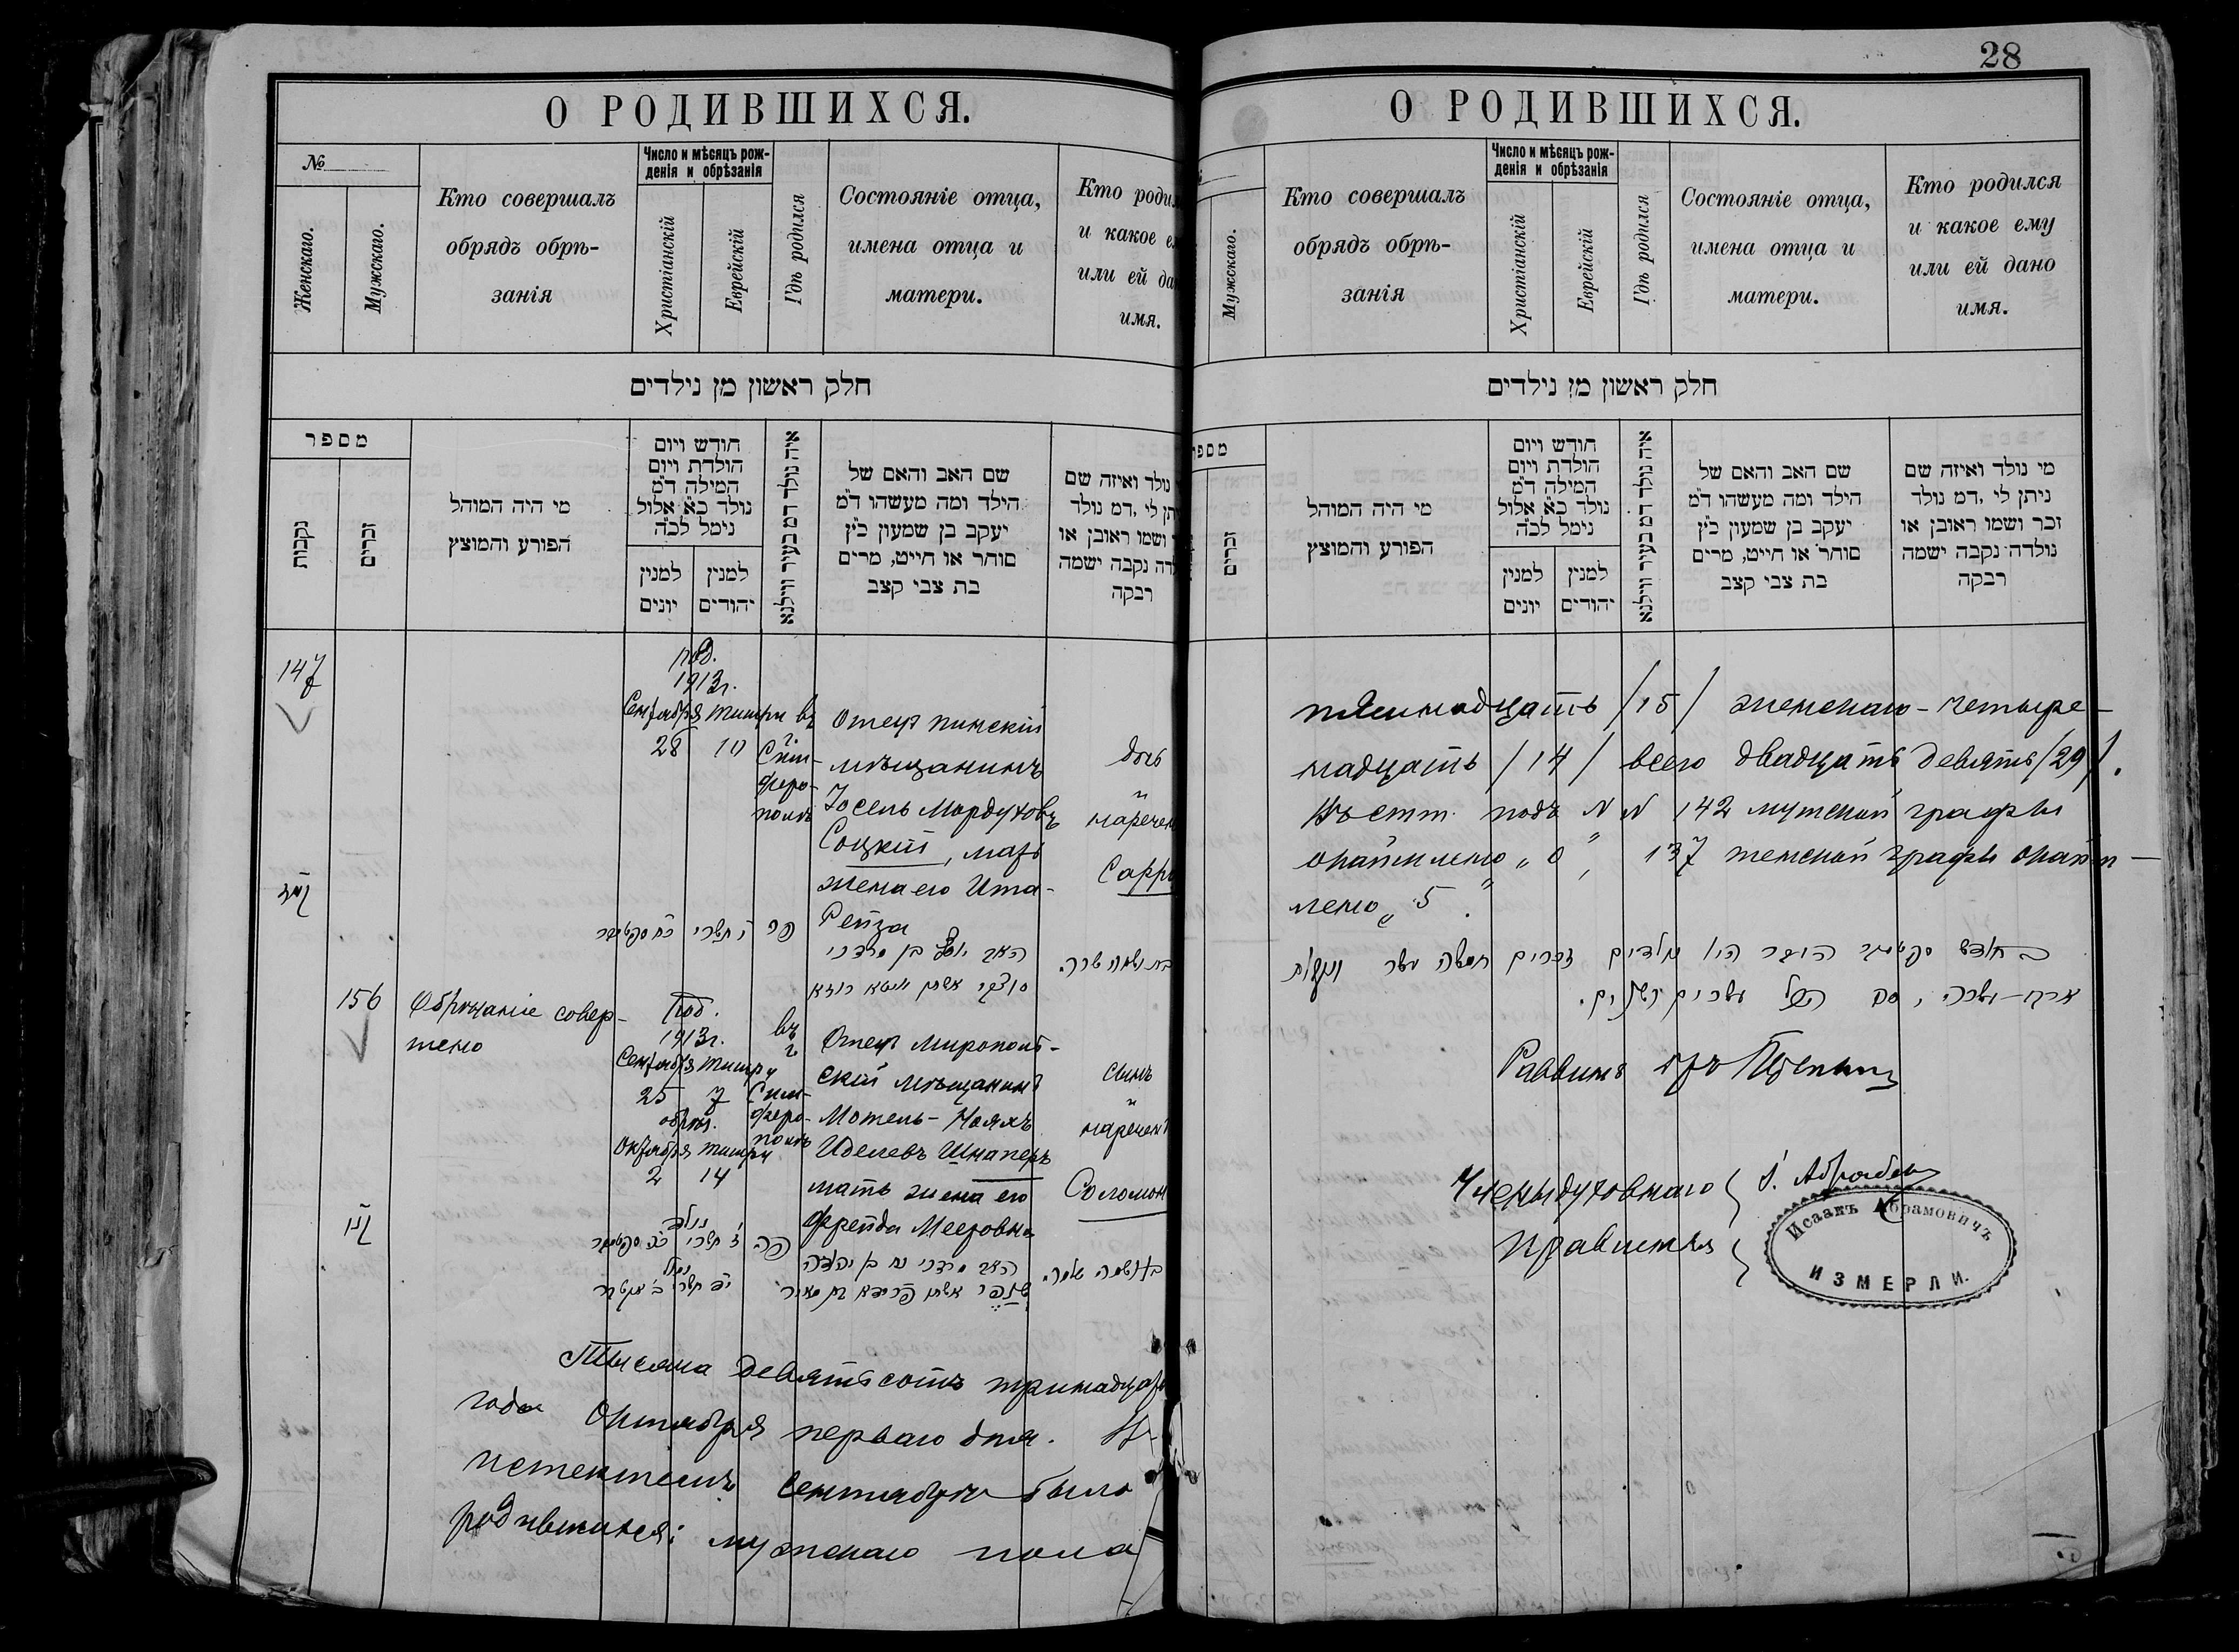 28
О РОДИВШИХСЯ.
№
Женскаго.
Мужскаго.
Кто совершалъ
обрядъ обрѣ-
занія
Число и мѣсяцъ рож-
денія и обрѣзанія
Христіанскій
Еврейскій
Гдѣ родился
Состояніе отца,
имена отца и
матери.
Кто роди
и какое е
или ей да
имя.
חלק ראשון מן נילדים
מספר
נקבות
זכרים
מי היה המוהל
הפורע והמוצץ
חודש ויום
הולדת ויום
המילה ד״מ
נולד כ״א אלול
נימל לכ״ה
למנין
יונים
למנין
יהודים
איה נולד דמ בעיר ווילנא
שם האב והאם של
הילד ומה מעשהו ד״מ
יעקב בן שמעון כ״ץ
סוחר או חייט, מרים
בת צבי קצב
נולד ואיזה שם
תן לי ,דמ נולד
ושמו ראובן או
לדה נקבה ישמה
רבקה
147
род.
1913г.
Сентября Тишри
28 10
въ
г.
Сим-
феро-
полѣ
Отецъ пинскій
мѣщанинъ
Іосель Мордуховъ
Соцкій, мать
жена его Ита-
Рейза
дочь
и
наречен
Сарра
פה י תשרי כח סעפטעמבר
האב יוסף בן מרדכי
156
Обрѣзаніе совер-
шено
Род.
1913г.
Сентября Тишри
25 7
обрѣз.
Октября Тишри
2 14
въ
г.
Сим-
феро-
полѣ
Отецъ Миропол-
скій мѣщанинъ
Мотель-Ноахъ
Иделевъ Шнаперъ
мать жена его
Фрейда Мееровна
сынъ
и
нареченъ
Соломон
האב מרדכי נח בן יהודה
Тысяча девятьсотъ тринадцать
года Октября перваго дня. Въ
истекшемъ Сентябрѣ было
родившихся: мужского пола
О РОДИВШИХСЯ.
Мужскаго.
Кто совершалъ
обрядъ обрѣ-
занія
Число и мѣсяцъ рож-
денія и обрѣзанія
Христіанскій
Еврейскій
Гдѣ родился
Состояніе отца,
имена отца и
матери.
Кто родился
и какое ему
или ей дано
имя.
חלק ראשון מן נילדים
מספר
זכרים
מי היה המוהל
הפורע והמוצץ
חודש ויום
הולדת ויום
המילה ד״מ
נולד כ״א אלול
נימל לכ״ה
למנין
יונים
למנין
יהודים
איה נולד דמ בעיר ווילנא
שם האב והאם של
הילד ומה מעשהו ד״מ
יעקב בן שמעון כ״ץ
סוחר או חייט, מרים
בת צבי קצב
מי נולד ואיזה שם
ניתן לי ,דמ נולד
זכר ושמו ראובן או
נולדה נקבה ישמה
רבקה
пятнадцать /15/ женскаго - четыре-
надцать /14/ всего двадцать девять /29/.
Въ ст. подъ N N 142 мужской графы
" 0 ", 137 женской графы
" 5 ".
זכרים חמשה עשר
עשרים
Раввинъ
духовнаго
правленія
Исаакъ Абрамовичъ
ИЗМЕРЛИ.